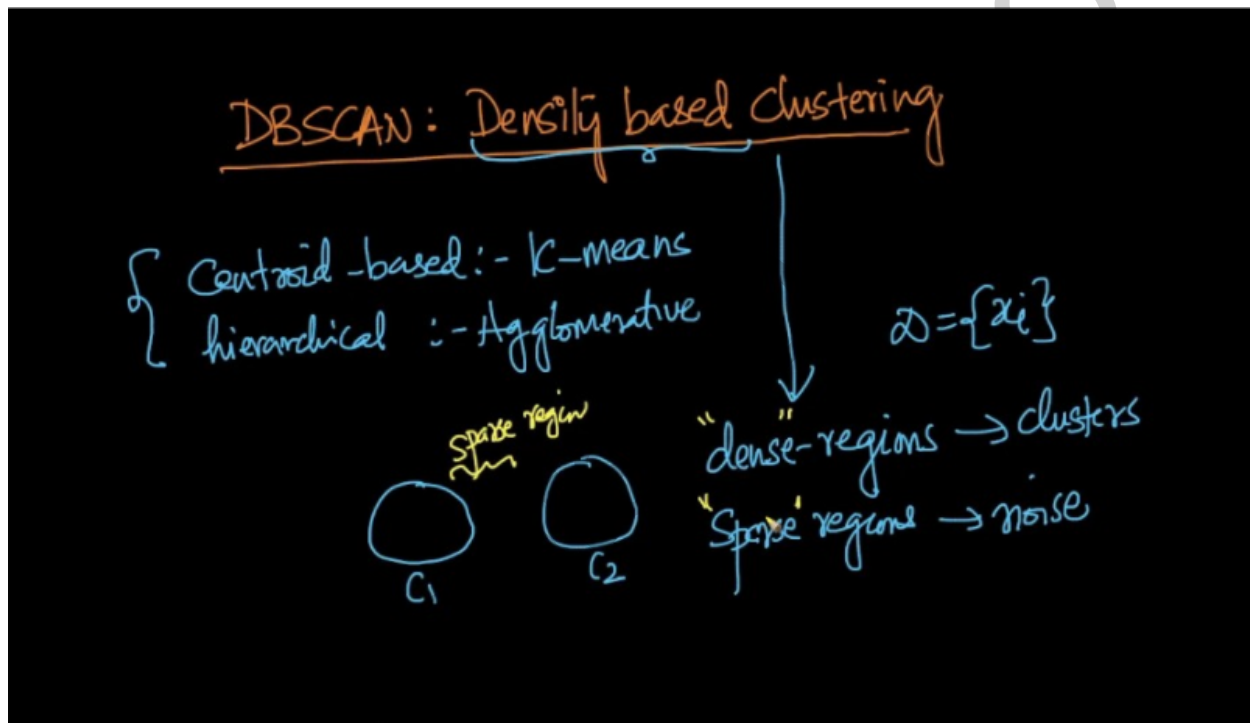 DBSCAN: Density based Clustering
Centroid-based:- K-means
hierarchical :- Agglomerative
D={xi}
sparse region
"dense"-regions → clusters
"Sparse" regions → noise
C1
C2